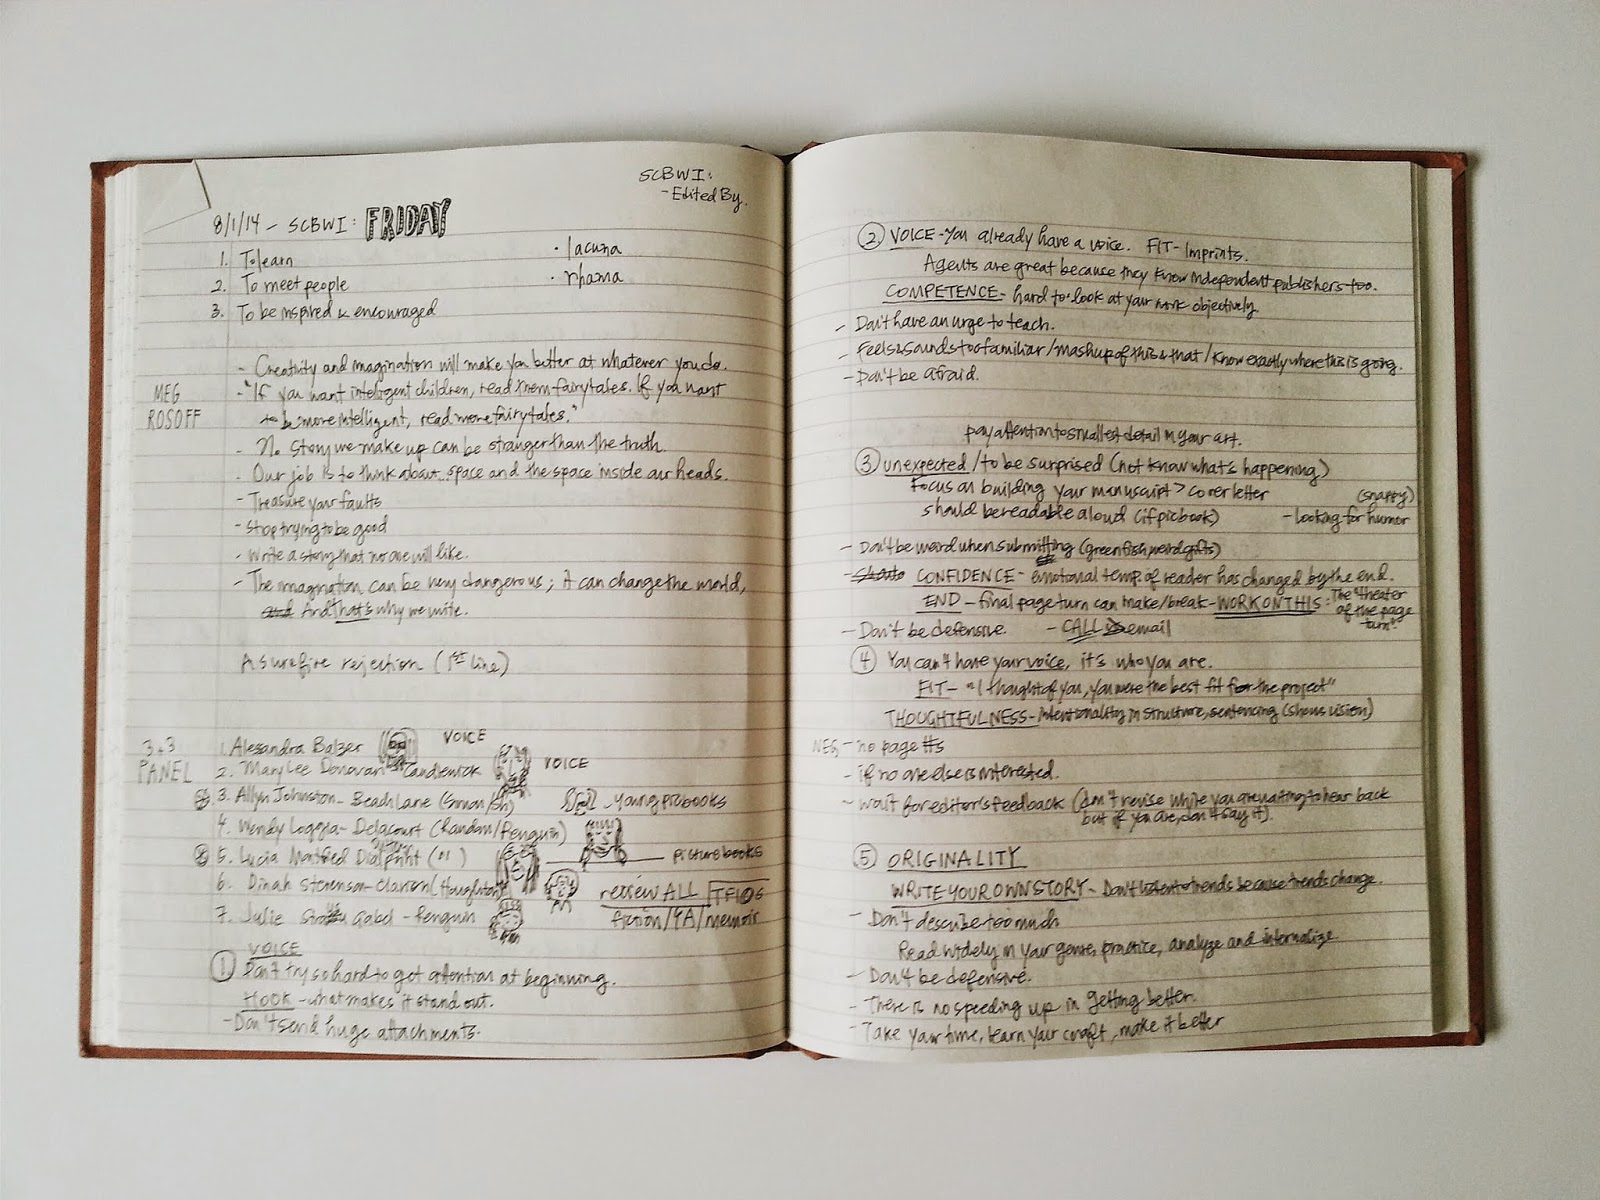 SCBWI:
- Edited By.
8/1/14 - SCBWI: FRIDAY
1. To learn
· lacuna
2. To meet people
· rhama
3. To be inspired & encouraged
- Creativity and imagination will make you better at whatever you do.
MEG
ROSOFF
- "If you want intelligent children, read them fairytales. If you want
to be more intelligent, read more fairytales."
story we make up can be stranger than the truth.
- Our job is to think about...space and the space inside our heads.
- Treasure your faults
- Stop trying to be good
- Write a story that no one will like.
- The imagination can be very dangerous; it can change the world,
and And that's why we write.
A surefire rejection (1st line)
3+3
PANEL
1. Alesandra Balzer VOICE
2. MaryLee Donovan - Candlewick VOICE
3. Allyn Johnston - Beach Lane - young pic books
4. Wendy Loggia - Delacourt (Random/Penguin)
5. Lucia picture books
6. Dinah Stevenson - Clarion (Houghton) review ALL TFIOS
7. Julie Gabel - Penguin fiction/YA/memoir
VOICE
① Don't try so hard to get attention at beginning.
HOOK - what makes it stand out.
- Don't send huge attachments.
② VOICE - You already have a voice. FIT - Imprints.
Agents are great because they know independent publishers too.
COMPETENCE - hard to look at your work objectively.
- Don't have an urge to teach.
- Feels & sounds too familiar / mashup of this & that / know exactly where this is going.
- Don't be afraid.
pay attention to smallest detail in your art.
③ unexpected / to be surprised (not know what's happening)
Focus on building your manuscript > cover letter
(snappy)
should be readable aloud (if picbook) - looking for humor
- Don't be weird when submitting (green fish, weird gifts)
- CONFIDENCE - emotional temp of reader has changed by the end.
END - final page turn can make/break - WORK ON THIS: The "theater
of the page
turn".
- Don't be defensive. - CALL email
④ You can't have your voice, it's who you are.
FIT - "I thought of you, you were the best fit for the project"
THOUGHTFULNESS - intentionality in structure, sentencing (shows vision)
NEG - no page #s
- if no one else is interested.
- wait for editor's feedback (don't revise while you are waiting to hear back
but if you are, don't say it).
⑤ ORIGINALITY
WRITE YOUR OWN STORY - Don't listen to trends because trends change.
- Don't describe too much
Read widely in your genre, practice, analyze and internalize.
- Don't be defensive.
- There is no speeding up in getting better.
- Take your time, learn your craft, make it better